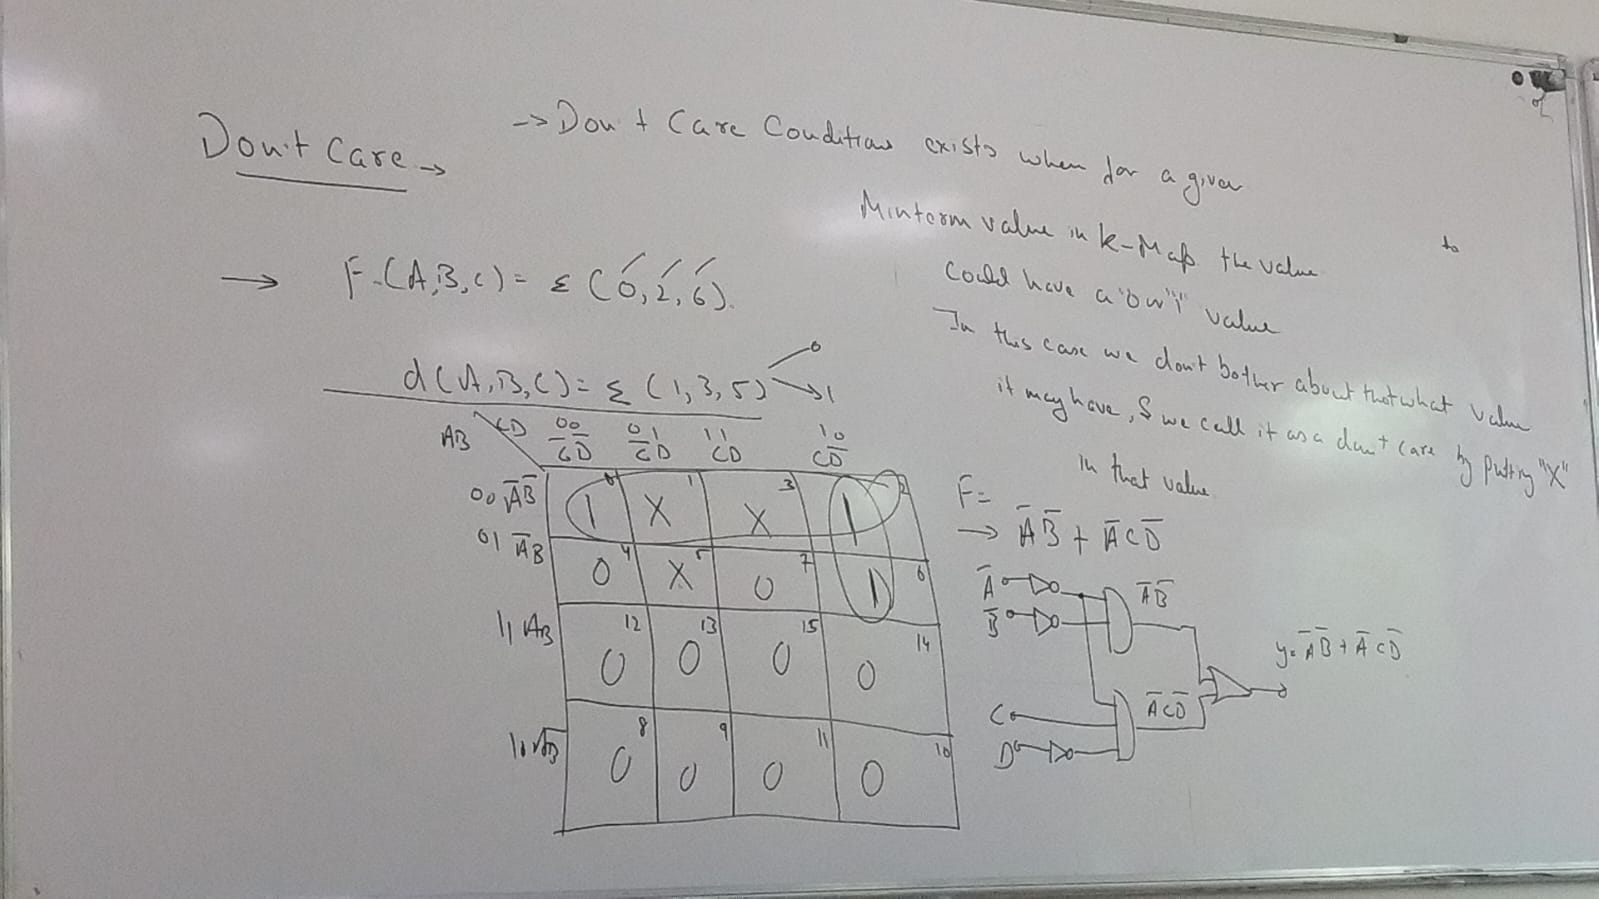 Don't Care →
→ Don't Care Conditions exists when for a given
Minterm value in K-Map the value
to
Could have a "0 or "1" value
In this case we don't bother about that what value
it may have, & we call it as a don't care by putting "X"
in that value
→ F(A,B,C) = Σ (0,2,6).
d(A,B,C) = Σ (1,3,5) 0 1
AB CD 00 C̅D̅ 01 C̅D 11 CD 10 CD̅
00 A̅B̅ 1 0 X 1 X 3 1 2
01 A̅B 0 4 X 5 0 7 1 6
11 AB 0 12 0 13 0 15 0 14
10 AB̅ 0 8 0 9 0 11 0 10
F=
→ A̅B̅ + A̅CD̅
A̅ A̅B̅
B̅
y= A̅B̅ + A̅CD̅
C A̅CD̅
D